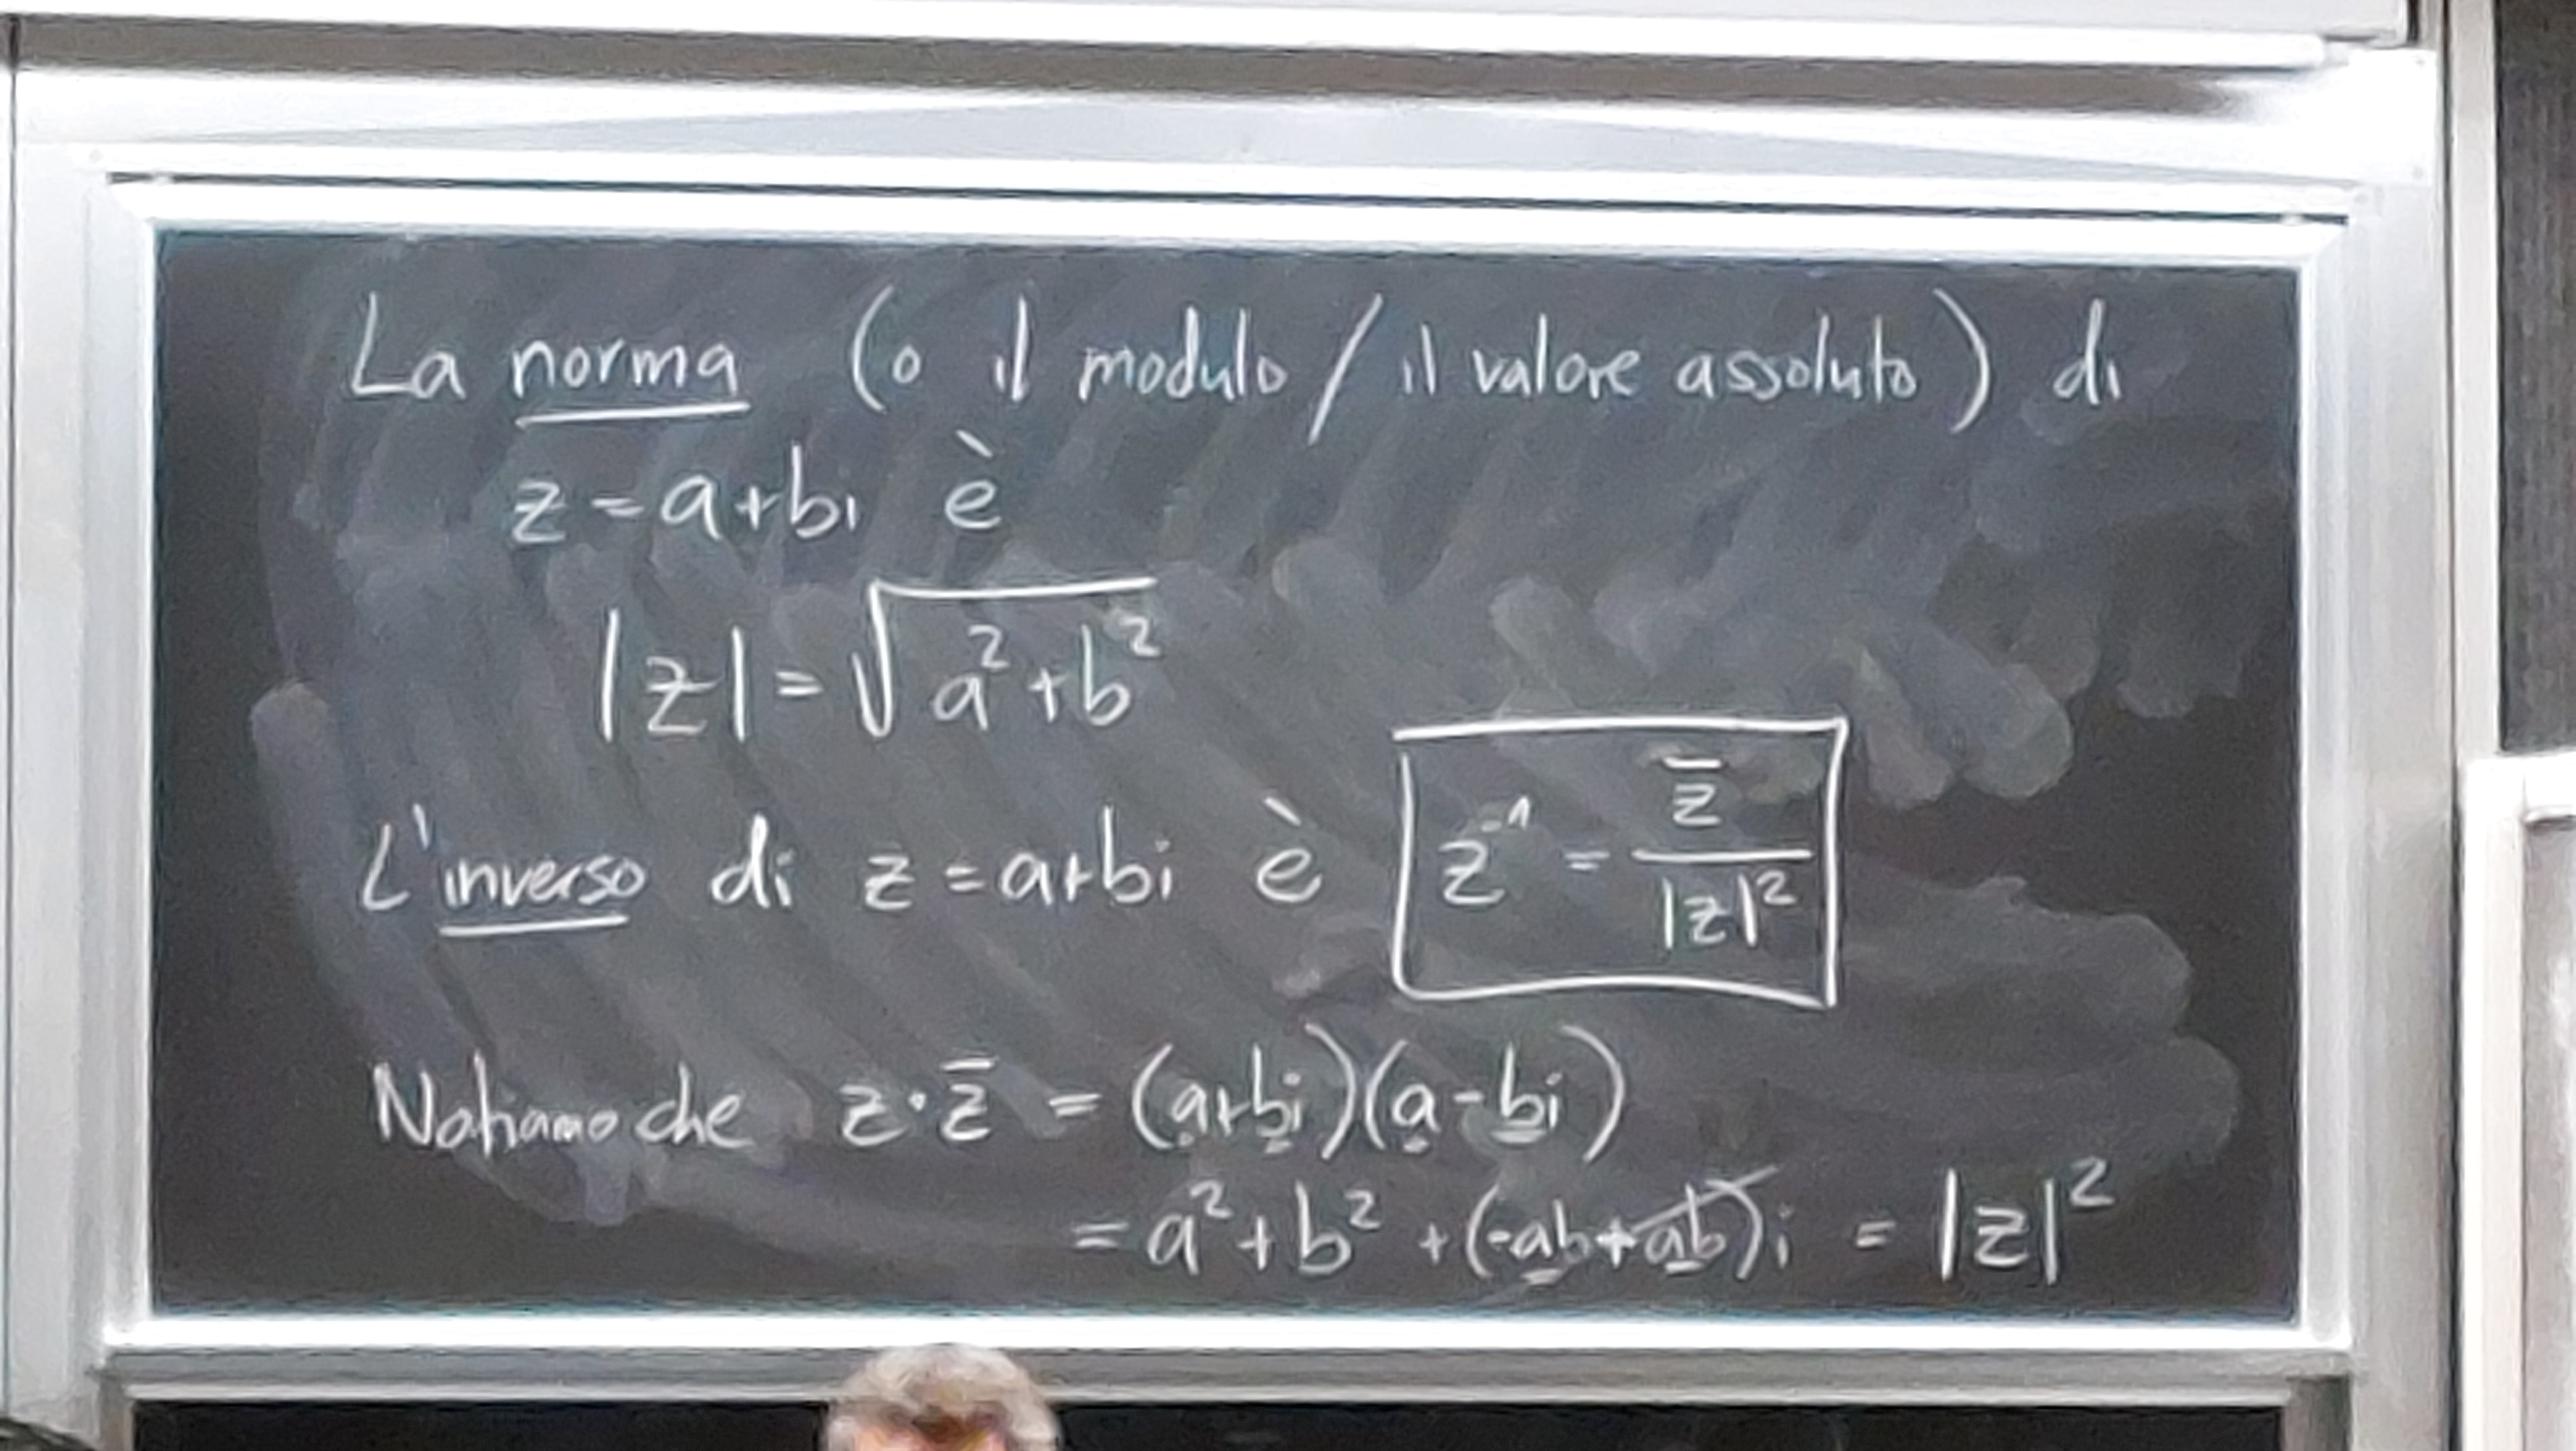 La norma (o il modulo / il valore assoluto) di
z = a+bi è
|z| = √(a²+b²)
L'inverso di z = a+bi è z⁻¹ = z̄ / |z|²
Notiamo che z·z̄ = (a+bi)(a-bi)
= a²+b² + (-ab+ab)i = |z|²